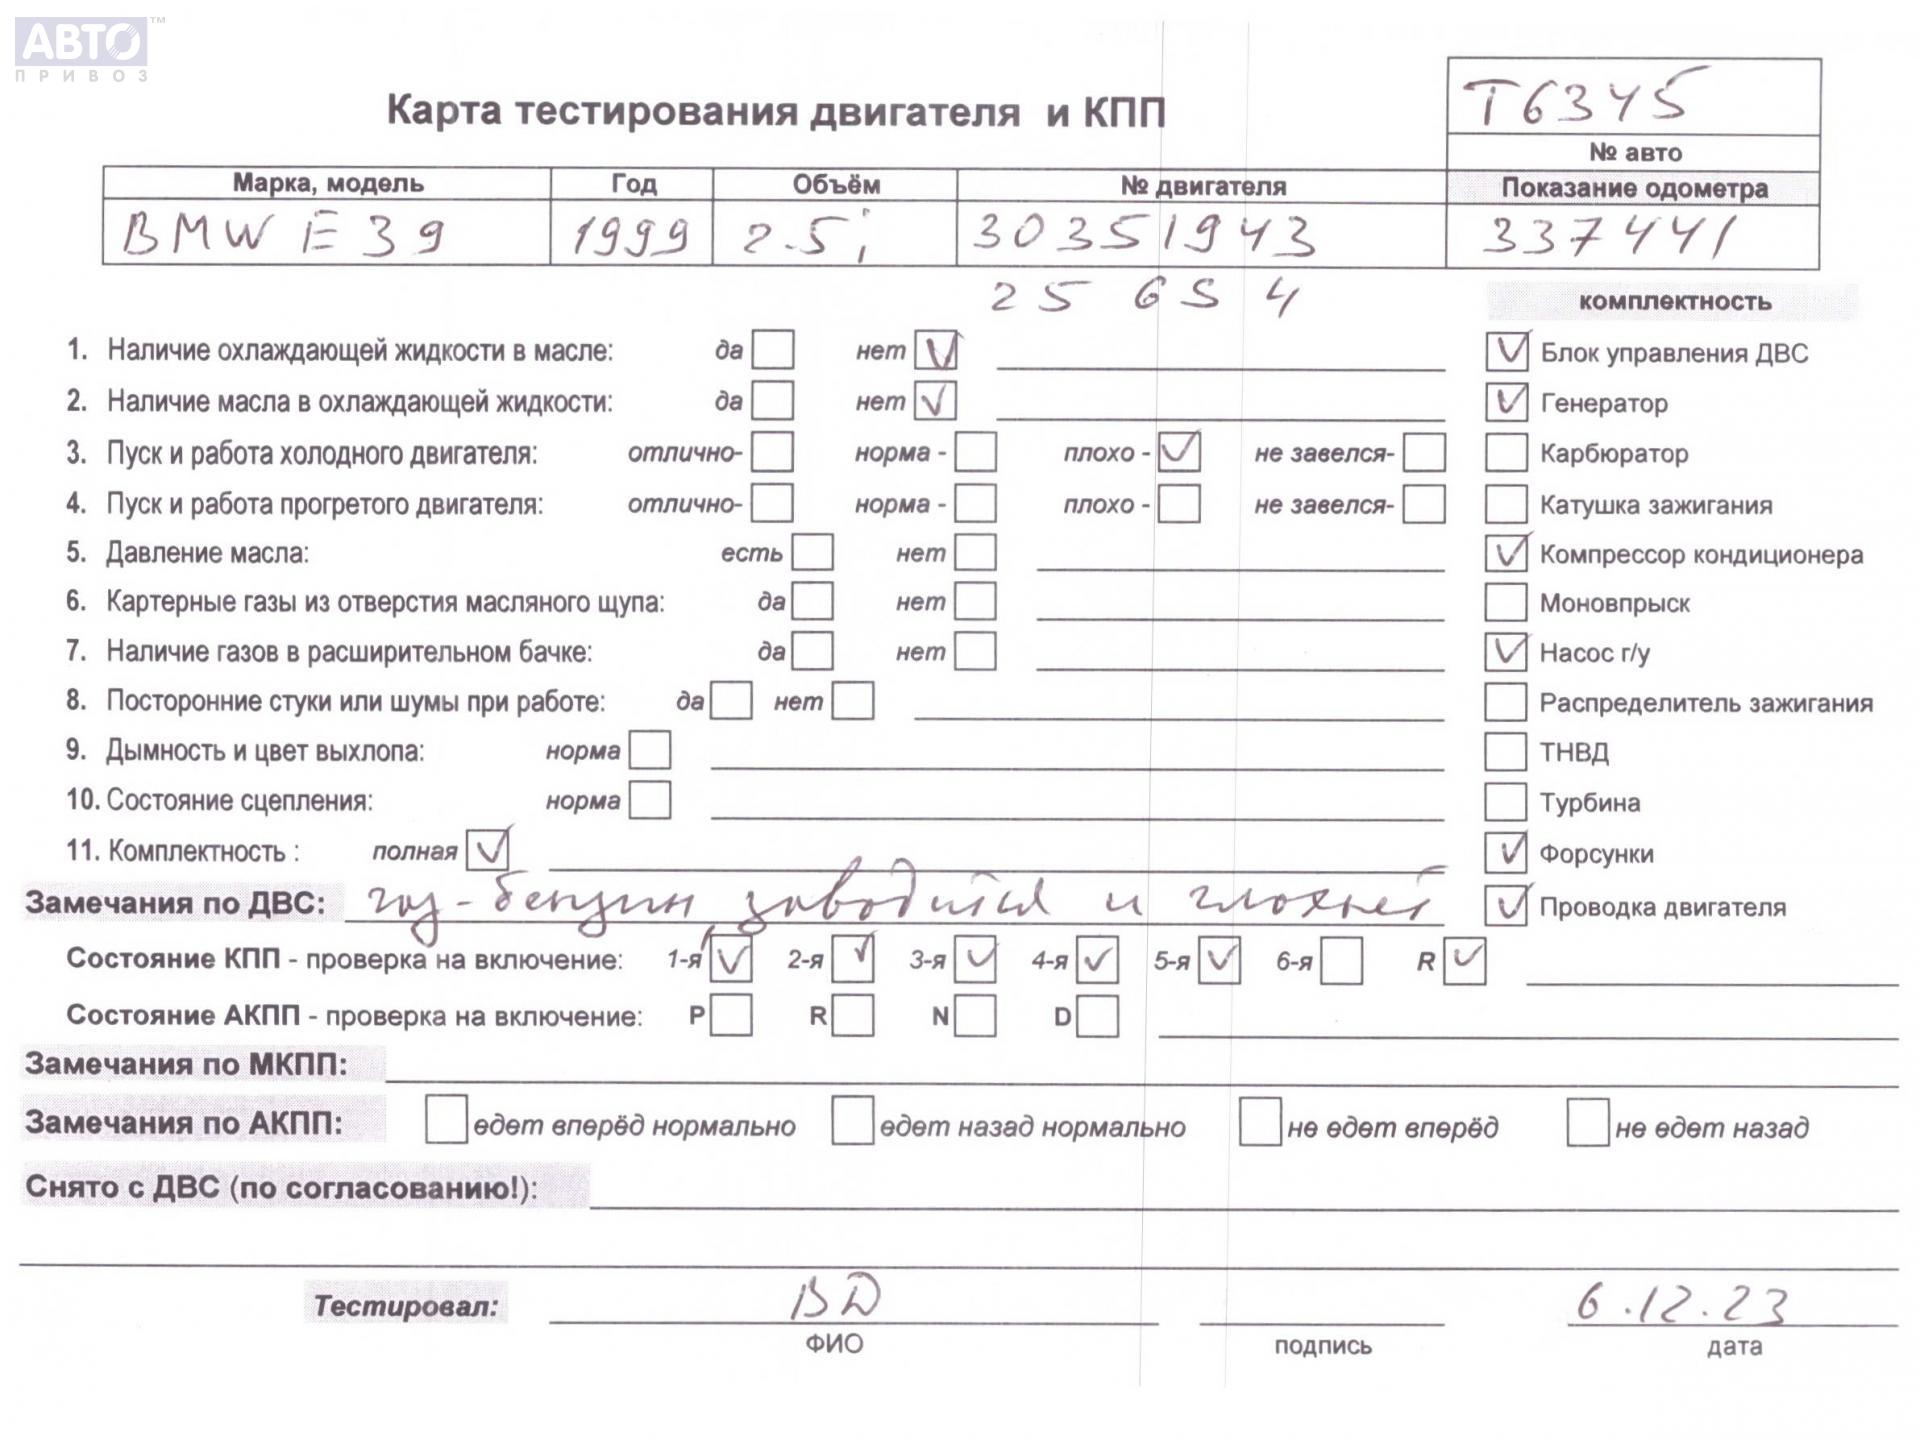 АВТО™
ПРИВОЗ
Т6345
Карта тестирования двигателя и КПП
№ авто
Марка, модель Год Объём № двигателя Показание одометра
BMW E39 1999 2.5i 30351943 337441
25 6S 4
комплектность
1. Наличие охлаждающей жидкости в масле: да нет
Блок управления ДВС
2. Наличие масла в охлаждающей жидкости: да нет
Генератор
3. Пуск и работа холодного двигателя: отлично- норма - плохо - не завелся-
Карбюратор
4. Пуск и работа прогретого двигателя: отлично- норма - плохо - не завелся-
Катушка зажигания
5. Давление масла: есть нет
Компрессор кондиционера
6. Картерные газы из отверстия масляного щупа: да нет
Моновпрыск
7. Наличие газов в расширительном бачке: да нет
Насос г/у
8. Посторонние стуки или шумы при работе: да нет
Распределитель зажигания
9. Дымность и цвет выхлопа: норма
ТНВД
10. Состояние сцепления: норма
Турбина
11. Комплектность : полная
Форсунки
Замечания по ДВС: газ-бензин, заводится и глохнет
Проводка двигателя
Состояние КПП - проверка на включение: 1-я 2-я 3-я 4-я 5-я 6-я R
Состояние АКПП - проверка на включение: P R N D
Замечания по МКПП:
Замечания по АКПП: едет вперёд нормально едет назад нормально не едет вперёд не едет назад
Снято с ДВС (по согласованию!):
Тестировал: BD 6.12.23
ФИО подпись дата